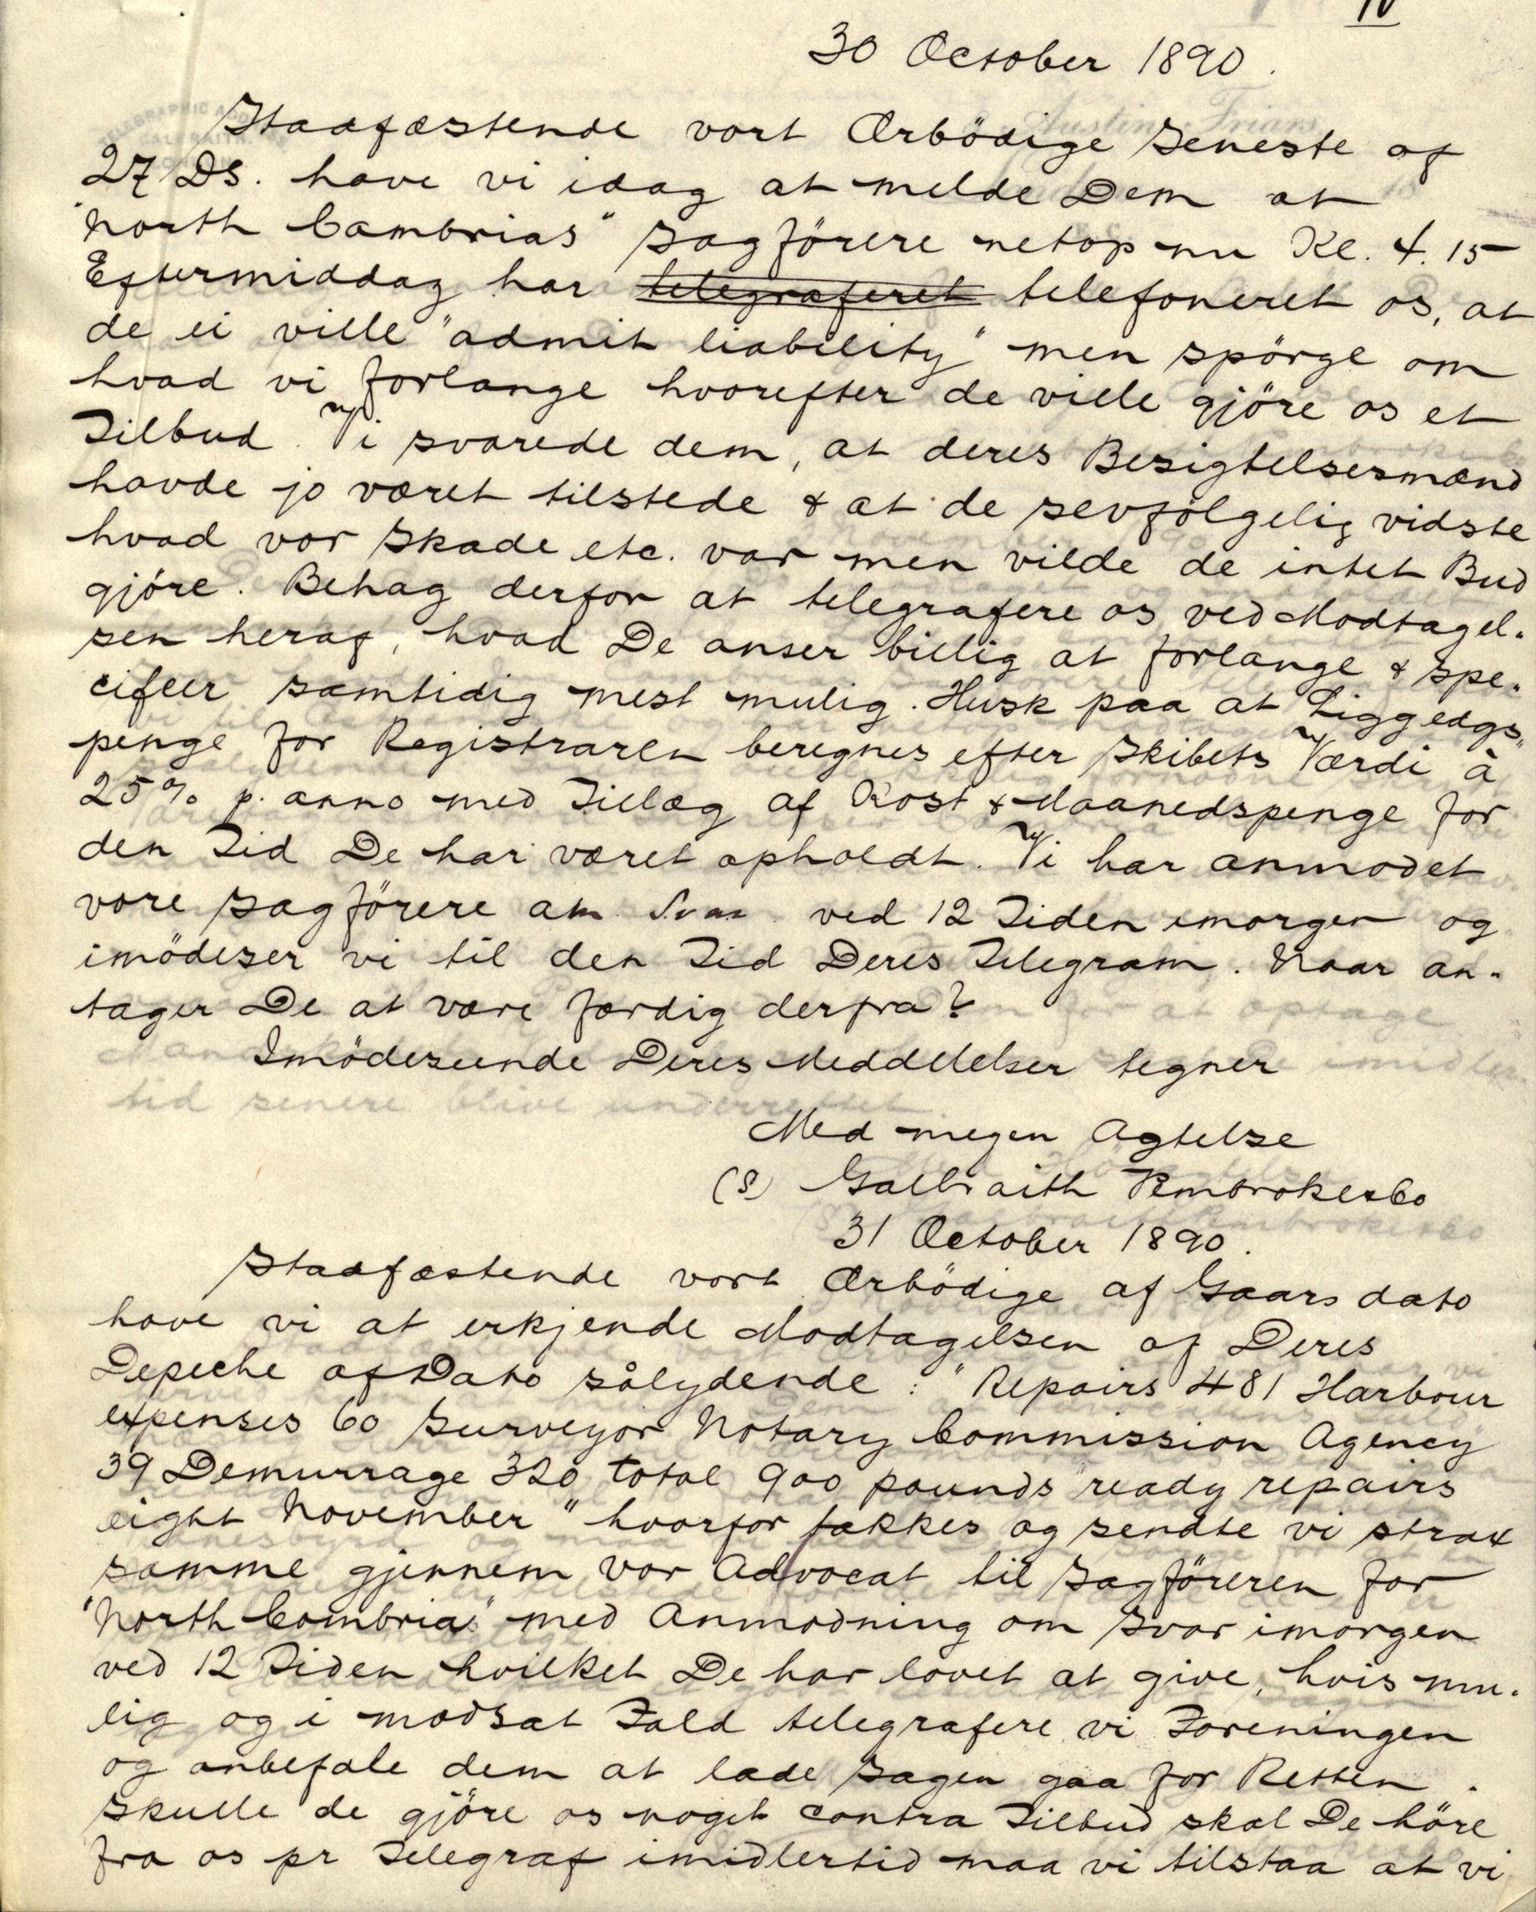 10
30 October 1890.
Stadfæstende vort Ærbödige Seneste af
27 Ds. have vi idag at melde Dem at
"North Cambrias" Sagförere netop nu Kl. 4.15
Eftermiddag har telegraferet telefoneret os, at
de ei ville "admit liability" men spörge om
hvad vi forlange hvorefter de ville gjöre os et
Tilbud. Vi svarede dem, at deres Besigtelsesmænd
havde jo været tilstede & at de selvfölgelig vidste
hvad vor Skade etc. var men vilde de intet Bud
gjöre. Behag derfor at telegrafere os ved Modtagel-
sen heraf, hvad De anser billig at forlange & spe-
cifeer samtidig mest mulig. Husk paa at Liggedags-
penge for Registraren beregnes efter Skibets Værdi à
25% p. anno med Tillæg af Kost & Maanedspenge for
den Tid De har været opholdt. Vi har anmodet
vore Sagförere om Svar ved 12 Tiden imorgen og
imödeser vi til den Tid Deres Telegram. Naar an-
tager De at være færdig derfra?
Imödeseende Deres Meddelelser tegner
Med megen Agtelse
(S) Galbraith Pembroke & Co
31 October 1890.
Stadfæstende vort Ærbödige af Gaars dato
have vi at erkjende Modtagelsen af Deres
Depeche af Dato sålydende: "Repairs 481 Harbour
expenses 60 Surveyor Notary Commission Agency
39 Demurrage 320 total 900 pounds ready repairs
eight November" hvorfor takkes og sendte vi strax
samme gjennem vor Advocat til Sagföreren for
"North Cambria" med Anmodning om Svar imorgen
ved 12 Tiden hvilket De har lovet at give, hvis mu-
lig og i modsat Fald telegrafere vi Foreningen
og anbefale dem at lade Sagen gaa for Retten.
Skulle de gjöre os noget contra Tilbud skal De höre
fra os pr Telegraf imidlertid maa vi tilstaa at vi